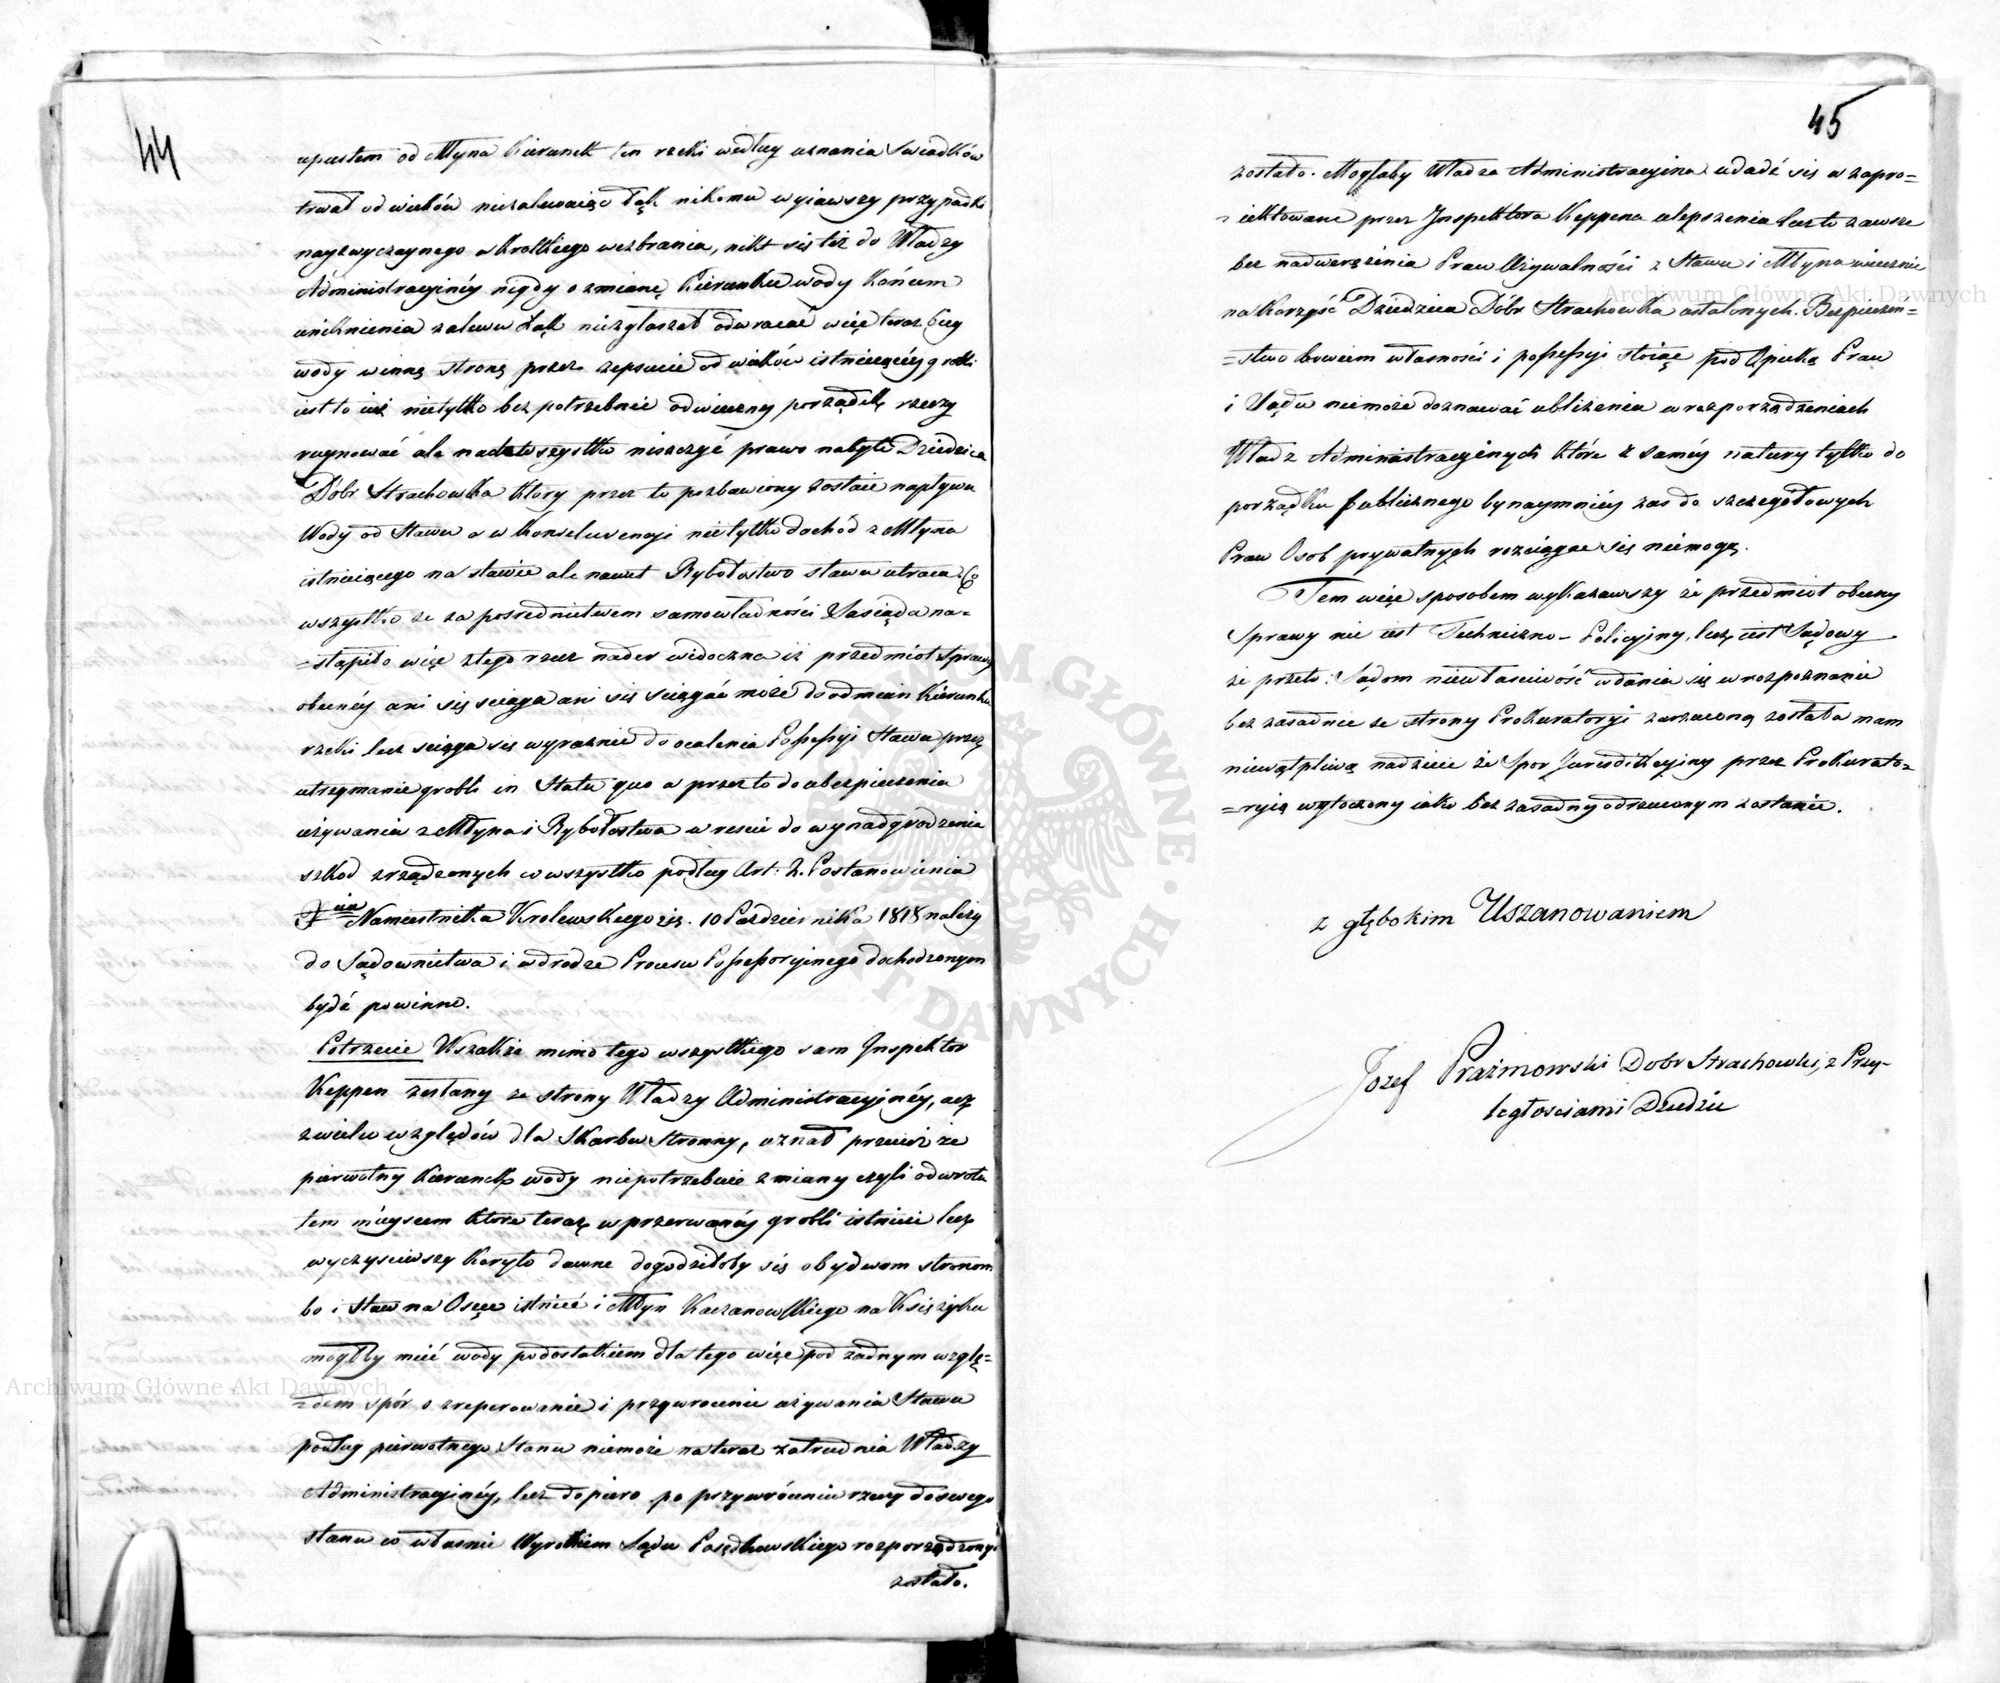 44
upustem od Młyna kierunek ten rzeki według uznania Swiadków
trwał od wieków niezalewaiąc Łąk nikomu wyiąwszy przypadki
nayzwyczaynego a krotkiego wezbrania, nikt się też do Władzy
Administracyinéy nigdy o zmianę kierunku wody końcem
uniknienia zalewu Łąk niezgłaszał odwracać więc teraz bieg
wody w inną stronę przez zepsucie od wieków istnieiącéy grobli
iest to iuż nietylko bez potrzebnie odwieczny porządek rzeczy
ruynować ale nadewszystko niszczyć prawo nabyte Dziedzica
Dóbr Strachowka ktory przez to pozbawiony zostaie napływu
Wody od Stawu a w konsekwencyi nie tylko dochód z Młyna
istnieiącego na stawie ale nawet Rybołostwo stawu utraca. Co
wszystko że za posrednictwem samowładności Sąsiada na=
=stąpiło więc z tego rzecz nader widoczna iż przedmiot Sprawy
obecnéy ani się sciąga ani się sciągać może do odmian kierunku
rzeki lecz sciąga się wyraźnie do ocalenia Possessyi Stawu przez
utrzymanie grobli in Statu quo a przez to do ubezpieczenia
używania z Młyna i Rybołostwa w rescie do wynadgrodzenia
szkod zrządzonych co wszystko podług Art: 2. Postanowienia
Xcia Namiestnika Krolewskiego 10 Pazdziernika 1818 należy
do Sądownictwa i w drodze Processu Possessoryinego dochodzonym
bydź powinno.
Potrzecie Wszakże mimo tego wszystkiego sam Inspektor
Keppen zesłany ze strony Władzy Administracyjnéy, acz
z wielu względów dla Skarbu Stronny, uznał przecież że
pierwotny kierunek wody niepotrzebuie zmiany czyli odwrotu
tem mieyscem które teraz w przerwanéy grobli istnieie lecz
wyczyściwszy koryto dawne dogodziłoby się obydwom stronom
bo i Staw na Osęce istnieć i Młyn Kaczanowskiego na Księżyku
mogłby mieć wody podostatkiem dla tego więc pod żadnym wzglę=
=dem spór o zreperowanie i przywrocenie używania Stawu
podług pierwotnego Stanu niemoże na teraz zatrudnia Władzy
Administracyinéy, lecz dopiero po przywróceniu rzeczy do swego
stanu co własnie Wyrokiem Sądu rozporządzony
zostało.
45
zostało. Mogłaby Władza Administracyina udadź się w zapro=
=iektowane przez Inspektora Keppena ulepszenia lecz to zawsze
bez nadwerężenia Praw Używalności z Stawu i Młyna wiecznie
na korzyść Dziedzica Dóbr Strachowka ustalonych. Bezpieczeń=
=stwo bowiem własności i possessyi stoiąc pod Opieką Praw
i Sądu niemoże doznawać ubliżenia w rozporządzeniach
Władz Administracyinych które z saméy natury tylko do
porządku publicznego bynaymniéy zas do szczegołowych
Praw Osob prywatnych rozciągac się niemogą.
Tem więc sposobem wykazawszy że przedmiot obecny
Sprawy nie iest Techniczno-Policyiny, lecz iest Sądowy
że przeto: Sądom niewłasciwość wdania się w rozpoznanie
bez zasadnie ze strony Prokuratoryi zarzuconą została mam
niewątpliwą nadzieie że Spor Jurisdikcyiny przez Prokurato=
=ryią wytoczony iako bez zasadny odrzuconym zostanie.
z głębokim Uszanowaniem
Jozef Prażmowski Dobr Strachowki, z Przy-
ległosciami Dziedzic
Archiwum Główne Akt Dawnych
Archiwum Główne Akt Dawnych
ARCHIWUM GŁÓWNE · AKT DAWNYCH ·